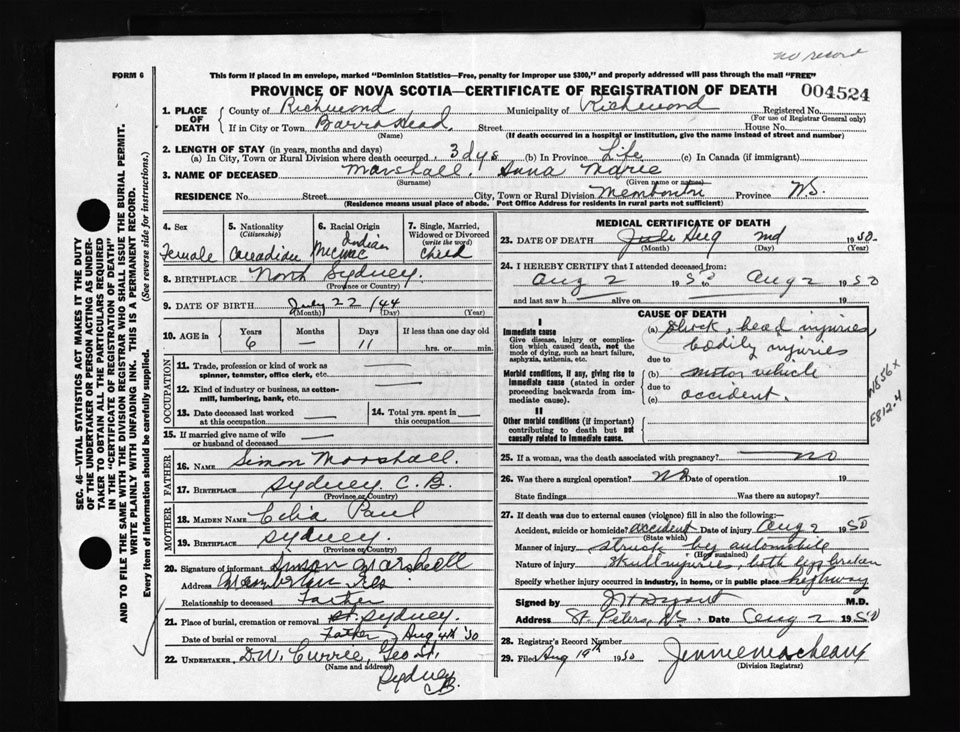 no record
FORM 6
This form if placed in an envelope, marked "Dominion Statistics—Free, penalty for improper use $300," and properly addressed will pass through the mail "FREE"
PROVINCE OF NOVA SCOTIA—CERTIFICATE OF REGISTRATION OF DEATH
004524
SEC. 46—VITAL STATISTICS ACT MAKES IT THE DUTY
OF THE UNDERTAKER OR PERSON ACTING AS UNDER-
TAKER TO OBTAIN ALL THE PARTICULARS REQUIRED
IN THE "CERTIFICATE OF REGISTRATION OF DEATH"
AND TO FILE THE SAME WITH THE DIVISION REGISTRAR WHO SHALL ISSUE THE BURIAL PERMIT.
WRITE PLAINLY WITH UNFADING INK. THIS IS A PERMANENT RECORD.
Every item of information should be carefully supplied. (See reverse side for instructions.)
1. PLACE OF DEATH
County of Richmond Municipality of Richmond Registered No.
(For use of Registrar General only)
If in City or Town Barra Head Street House No.
(Name) (If death occurred in a hospital or institution, give the name instead of street and number)
2. LENGTH OF STAY (in years, months and days)
(a) In City, Town or Rural Division where death occurred 3 dys (b) In Province Life (c) In Canada (if immigrant)
3. NAME OF DECEASED Marshall Anna Marie
(Surname) (Given name or names)
RESIDENCE No. Street City, Town or Rural Division Province N.S.
(Residence means usual place of abode. Post Office Address for residents in rural parts not sufficient)
4. Sex
Female
5. Nationality
(Citizenship)
Canadian
6. Racial Origin
Indian
Micmac
7. Single, Married,
Widowed or Divorced
(write the word)
child
8. BIRTHPLACE North Sydney.
(Province or Country)
9. DATE OF BIRTH July 22 /44
(Month) (Day) (Year)
10. AGE in
Years Months Days If less than one day old
6 — 11 hrs. or min.
OCCUPATION
11. Trade, profession or kind of work as
spinner, teamster, office clerk, etc.
12. Kind of industry or business, as cotton-
mill, lumbering, bank, etc.
13. Date deceased last worked
at this occupation
14. Total yrs. spent in
this occupation
15. If married give name of wife
or husband of deceased
FATHER
16. NAME Simon Marshall.
17. BIRTHPLACE Sydney C.B.
(Province or Country)
MOTHER
18. MAIDEN NAME Celia Paul
19. BIRTHPLACE Sydney.
(Province or Country)
20. Signature of informant Simon Marshall
Address
Relationship to deceased Father
21. Place of burial, cremation or removal Sydney.
Date of burial or removal Aug 4th '50
22. UNDERTAKER D.W. Currie, Geo St.
(Name and address)
Sydney
C.B.
MEDICAL CERTIFICATE OF DEATH
23. DATE OF DEATH Aug 1950.
(Month) (Day) (Year)
24. I HEREBY CERTIFY that I attended deceased from:
Aug 2 1950 to Aug 2 1950
and last saw h alive on 19
CAUSE OF DEATH
I
Immediate cause
Give disease, injury or complica-
tion which caused death, not the
mode of dying, such as heart failure,
asphyxia, asthenia, etc.
(a) Shock, head injuries,
bodily injuries
due to
Morbid conditions, if any, giving rise to
immediate cause (stated in order
proceeding backwards from im-
mediate cause).
(b) motor vehicle
due to
(c) accident.
II
Other morbid conditions (if important)
contributing to death but not
causally related to immediate cause.
N856x
E812.4
25. If a woman, was the death associated with pregnancy? no
26. Was there a surgical operation? No Date of operation 19
State findings Was there an autopsy?
27. If death was due to external causes (violence) fill in also the following:
Accident, suicide or homicide? accident Date of injury Aug 2 1950
(State which)
Manner of injury struck by automobile
(How sustained)
Nature of injury skull injuries, both legs broken
Specify whether injury occurred in industry, in home, or in public place highway
Signed by M.D.
Address St. Peters, N.S. Date Aug 2 1950
28. Registrar's Record Number
29. Filed Aug 19th 1950
(Division Registrar)